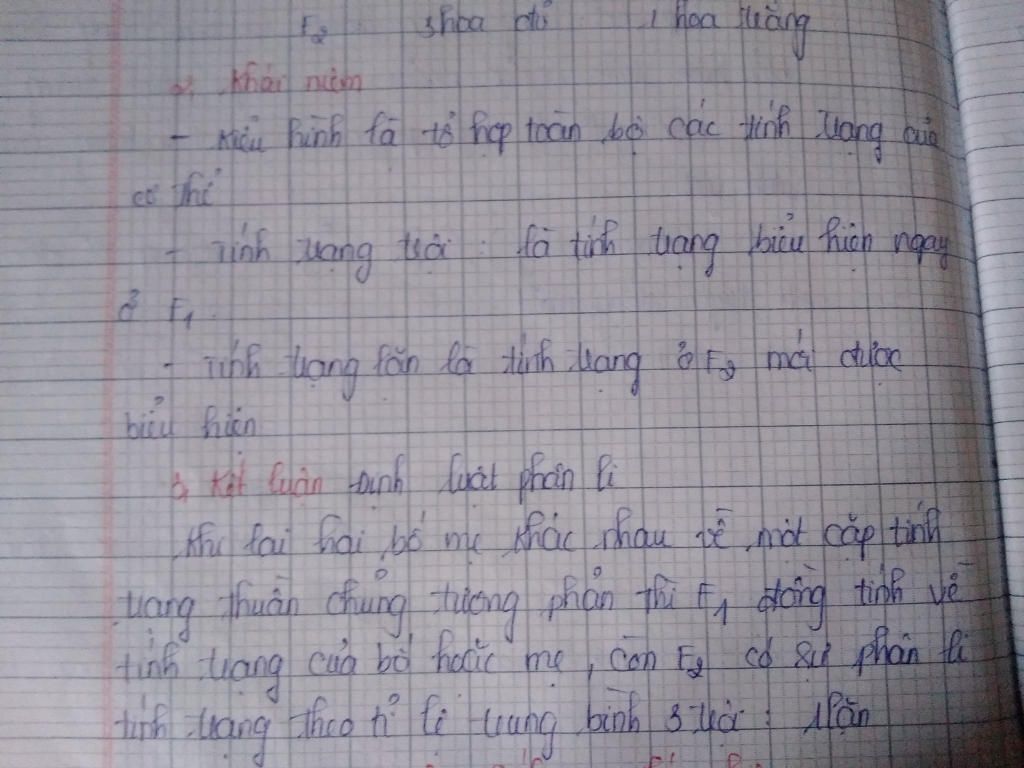 F2 3 hoa đỏ 1 hoa trắng
2, Khái niệm
- Kiểu hình là tổ hợp toàn bộ các tính trạng của
cơ thể
- Tính trạng trội : là tính trạng biểu hiện ngay
ở F1
- Tính trạng lặn là tính trạng ở F2 mới được
biểu hiện
3, Kết luận định luật phân li
Khi lai hai bố mẹ khác nhau về một cặp tính
trạng thuần chủng tương phản thì F1 đồng tính về
tính trạng của bố hoặc mẹ, còn F2 có sự phân li
tính trạng theo tỉ lệ trung bình 3 trội : 1 lặn